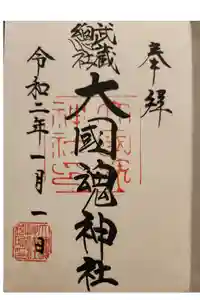 奉拝
武蔵
総社
大國魂神社
令和二年一月一日